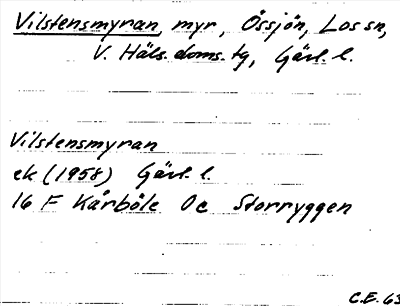 Vilstensmyran, myr, Össjön, Los sn,
V. Häls. doms. tg, Gävl. l.
Vilstensmyran
ek (1958) Gävl. l.
16 F Kårböle 0c Storryggen
C.E. 63